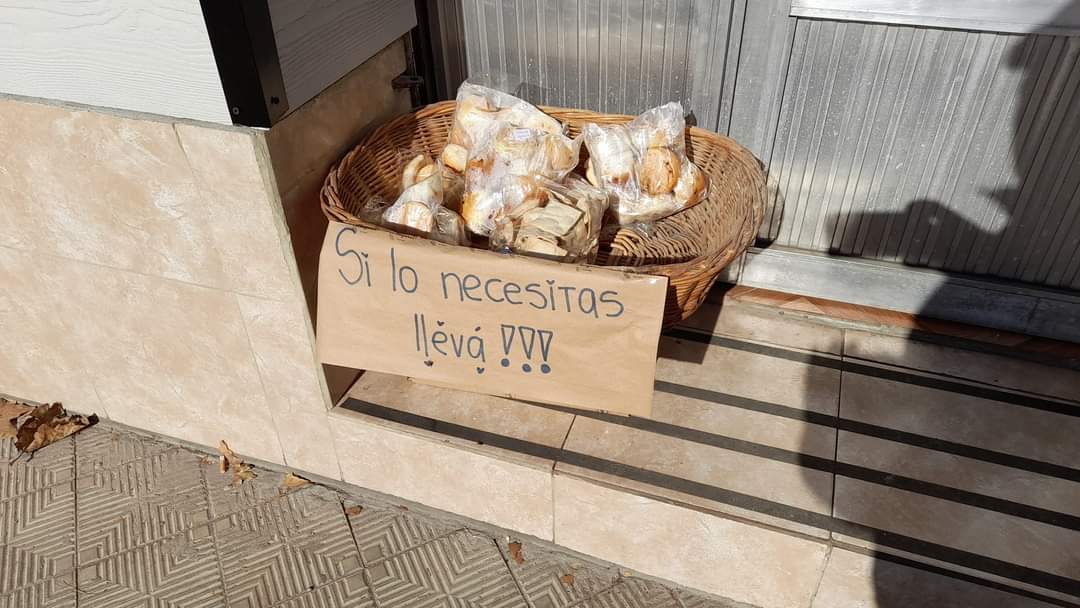 Si lo necesitas
llevá !!!